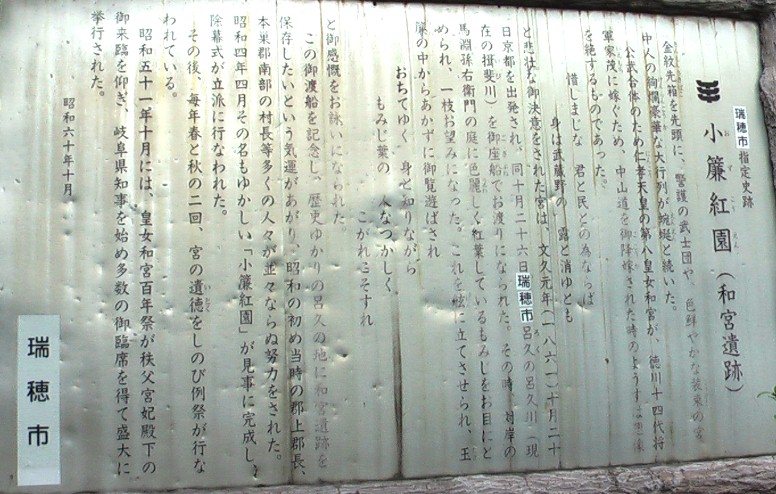 瑞穂市指定史跡
小簾紅園（和宮遺跡）
おずこうえん
金紋先箱を先頭に、警護の武士団や、色鮮やかな装束の宮
中人の絢爛豪華な大行列が蜿蜒と続いた。
公武合体のため仁孝天皇の第八皇女和宮が、徳川十四代将
軍家茂に嫁ぐため、中山道を御降嫁された時のようすは
を絶するものであった。
惜しましな　君と民との為ならば
身は武蔵野の　露と消ゆとも
と悲壮な御決意をされた宮は、文久元年（一八六一）十月二十
日京都を出発され、同十月二十六日瑞穂市呂久の呂久川（現
在の揖斐川）を御座船でお渡りになられた。その時、対岸の
馬淵孫右衛門の庭に色麗しく紅葉しているもみじをお目にと
められ、一枝お望みになった。これを舷に立てさせられ、玉
簾の中からあかずに御覧遊ばされ
おちてゆく　身と知りながら
もみじ葉の　人なつかしく
こがれこそすれ
と御感慨をお詠いになられた
この御渡船を記念し、歴史ゆかりの呂久の地に和宮遺跡を
保存したいという気運があがり、昭和の初め当時の郡上郡長、
本巣郡南部の村長等多くの人々が並々ならぬ努力をされた。
昭和四年四月その名もゆかしい「小簾紅園」が見事に完成し、
除幕式が立派に行なわれた。
その後、毎年春と秋の二回、宮の遺徳をしのび例祭が行な
われている。
昭和五十一年十月には、皇女和宮百年祭が秩父宮妃殿下の
御来臨を仰ぎ、岐阜県知事を始め多数の御臨席を得て盛大に
挙行された。
昭和六十年十月
瑞穂市